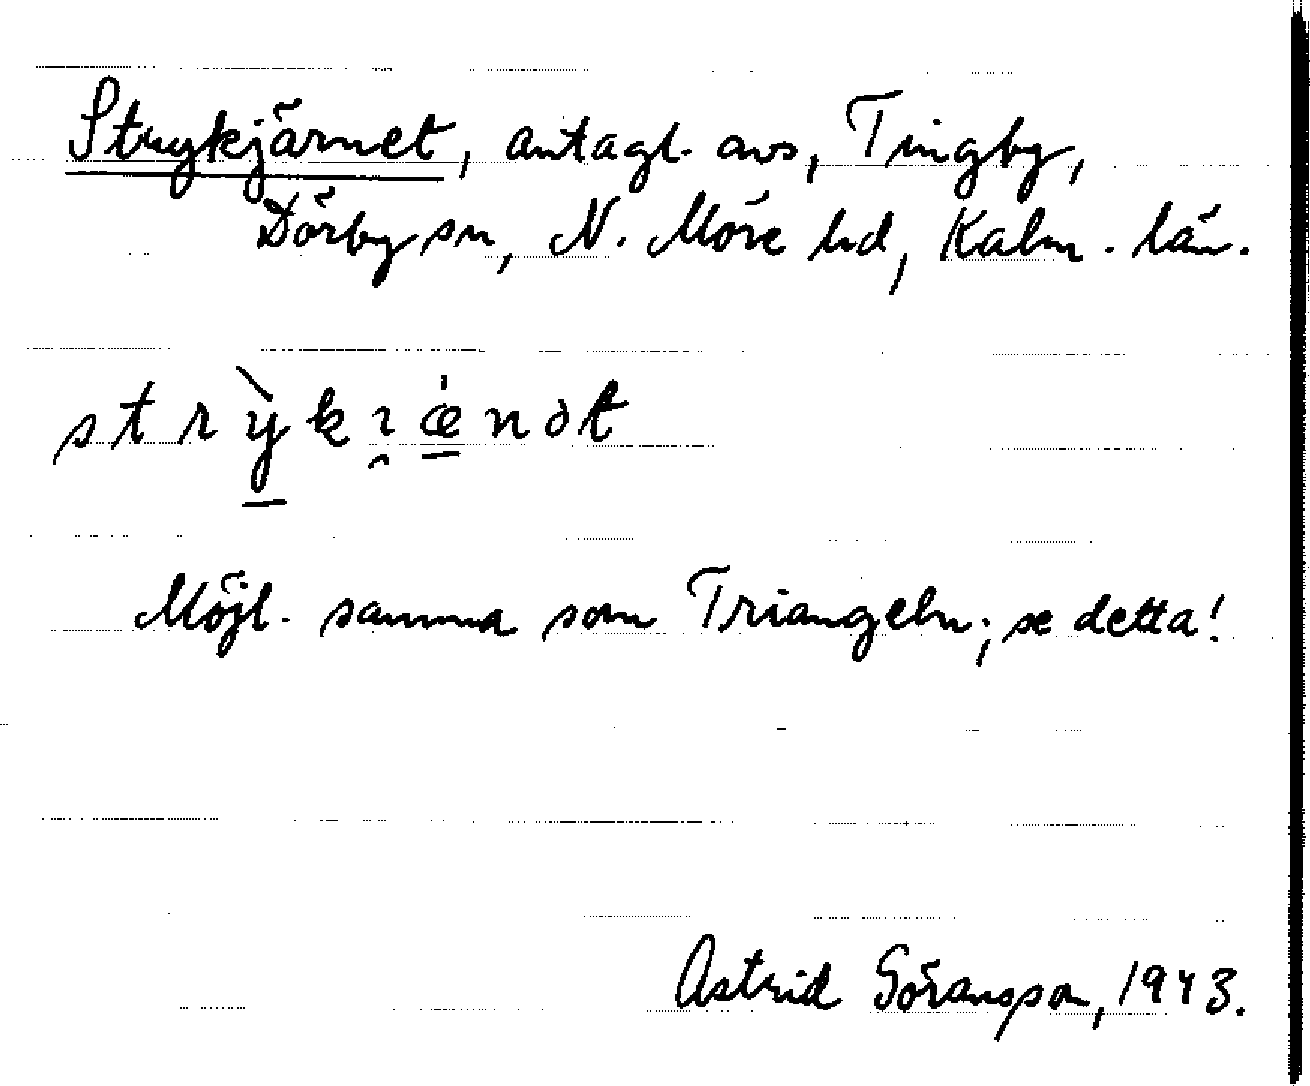 Strykjärnet, antagl. avs, Tingby,
Dörby sn, N. Möre hd, Kalm. län.
strỳ̠kı̯æ̠̍nət
Möjl. samma som Triangeln; se detta!
Astrid Göransson, 1943.